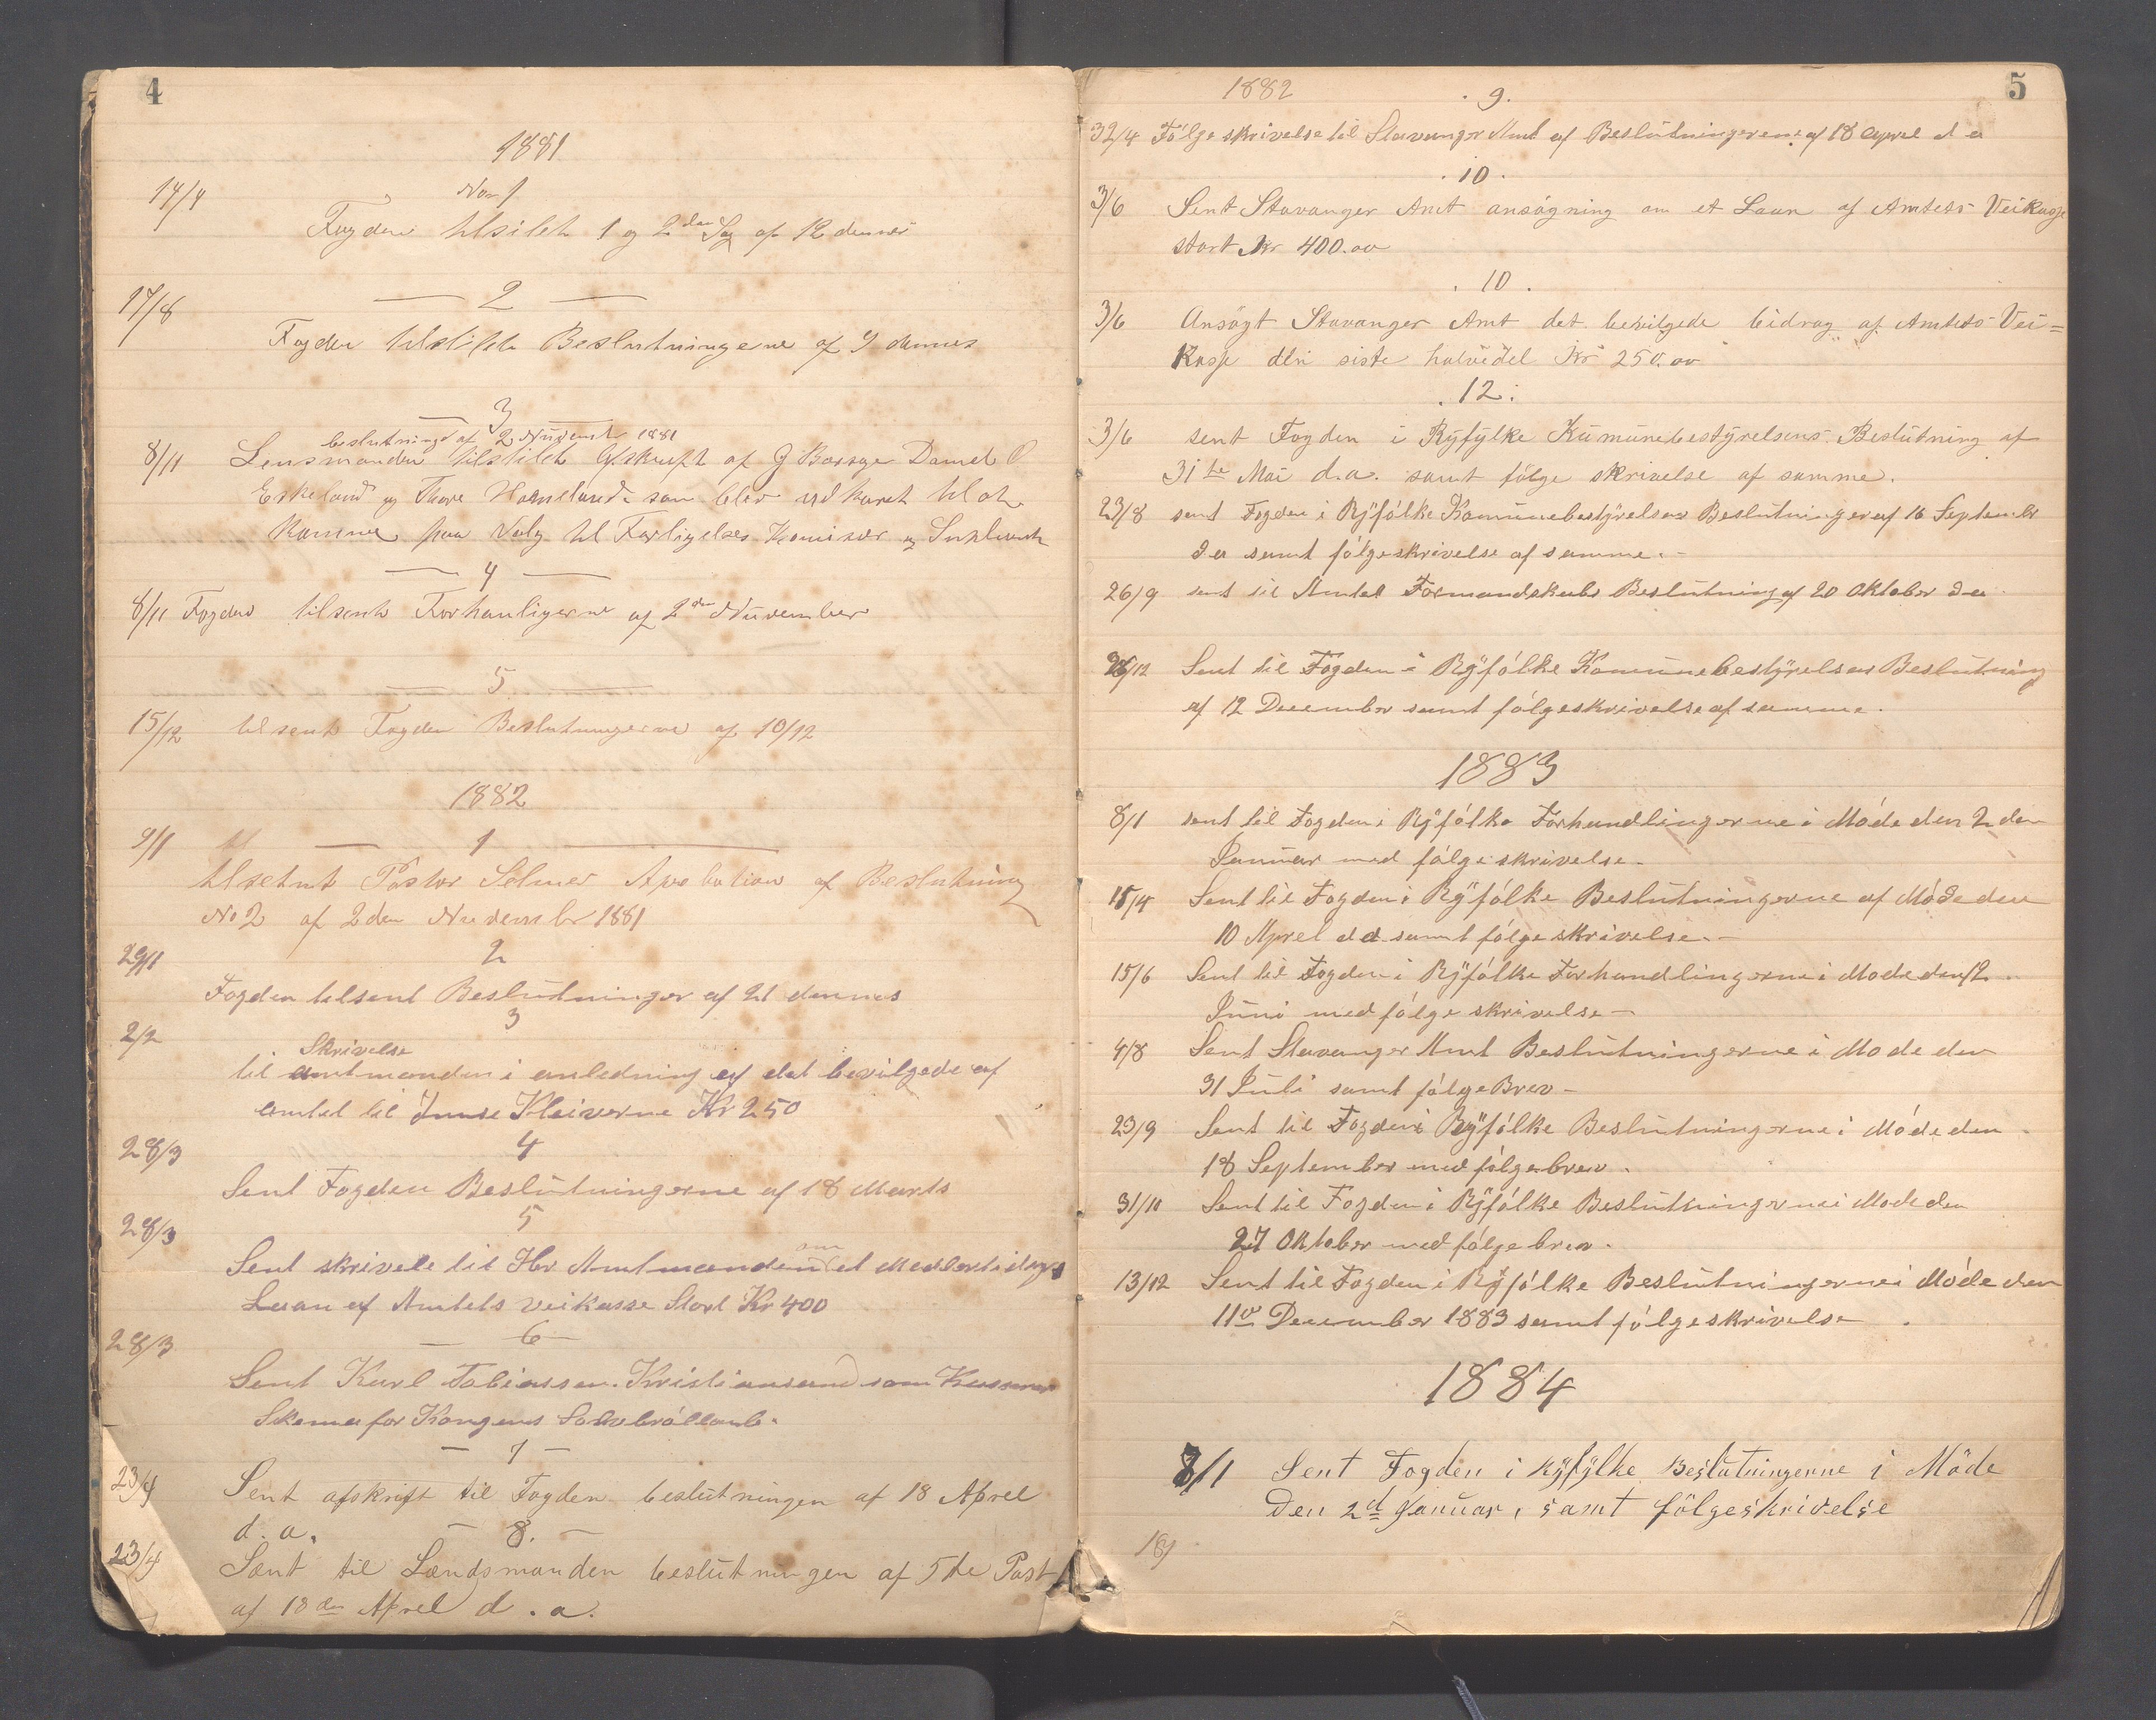 4
1881
No 1
14/4
Fogden tilsilet 1 og 2den Sag af 12 dennes
2
17/8
Fogden tilstilet Beslutningerne af 9 dennes
3
beslutninge af 2 Nuvembr 1881
8/11 Lensmanden tilstilet Afskrift af Daniel
Eskeland og Thore som blev udkaaret til at
komme paa Valg til Forligelses Komisær og
4
8/11 Fogden tilsent Forhanligerne af 2den Nuvember
5
15/12 tilsent Fogden Beslutningerne af 10/12
1882
9/1 1
tilsent Pastor Selmer Aprobation af Beslutning
No 2 af 2den Nuvembr 1881
29/1 2
Fogden tilsent Beslutninger af 21 dennes
3
2/2 Skrivelse
til amtmanden i anledning af det bevilgede af
amtet til Kleiverne Kr 250
28/3 4
Sent Fogden Beslutningerne af 18 Marts
28/3 5
om
Sent skrivele til Hr Amtmanden et
Laan af Amtets veikasse Stort Kr 400
28/3 6
Sent Karl Tobiassen. Kristiansand som Kasserer
Skema for Kongens Sølvbröllonb.
7
23/4 Sent afskrift til Fogden beslutningen af 18 Aprel
d. a. 8.
23/4 Sent til Lændsmanden beslutningen af 5te Post
af 18den Aprel d. a.
5
1882 . 9.
32/4 Fölge skrivelse til Stavanger Amt af Beslutningerene af 18 Aprel d a
. 10 .
3/6 Sent Stavanger Amt ansögning om et Laan af Amtets Veikasse
stort Kr 400.00
. 10 .
3/6 Ansögt Stavanger Amt det bevilgede bidrag af Amtets Vei=
Kasse den siste halvedel Kr 250.00
. 12 .
3/6 sent Fogden i Ryfylke Kumunebestyrelsens Beslutning af
31te Mai d.a. samt fölge skrivelse af samme.
23/8 sent Fogden i Ryfölke Komunebestyrelses Beslutninger af 16 Septembr
d a samt fölgeskrivelse af samme. -
26/9 sent til Amtet Formandskabs Beslutning af 20 Oktober d a
26/12 Sent til Fogden i Ryfölke Komunebestyrelses Beslutning
af 12 December samt fölgeskrivelse af samme.
1883
8/1 sent til Fogden i Ryfölke Forhandlingerne i Möde den 2 den
Januar med fölge skrivelse -
15/4 Sent til Fogden i Ryfölke Beslutningerne af Möde den
10 Aprel d a samt fölgeskrivelse. -
15/6 Sent til Fogden i Ryfölke Forhandlingerne i Mode den 12
Juni med fölge skrivelse -
4/8 Sent Stavanger Amt Beslutningerne i Mode den
31 Juli samt fölge Brev -
23/9 Sent til Fogden i Ryfölke Beslutningerne i Möde den
18 September med fölgebrev .
31/10 Sent til Fogden i Ryfölke Beslutningerne i Mode den
27 Oktober med fölge brev .
13/12 Sent til Fogden i Ryfölke Beslutningerne i Möde den
11te December 1883 samt fölgeskrivelse .
1884
8/1 Sent Fogden i Ryfylke Beslutningerne i Möde
Den 2d Januar, samt fölgeskrivelse